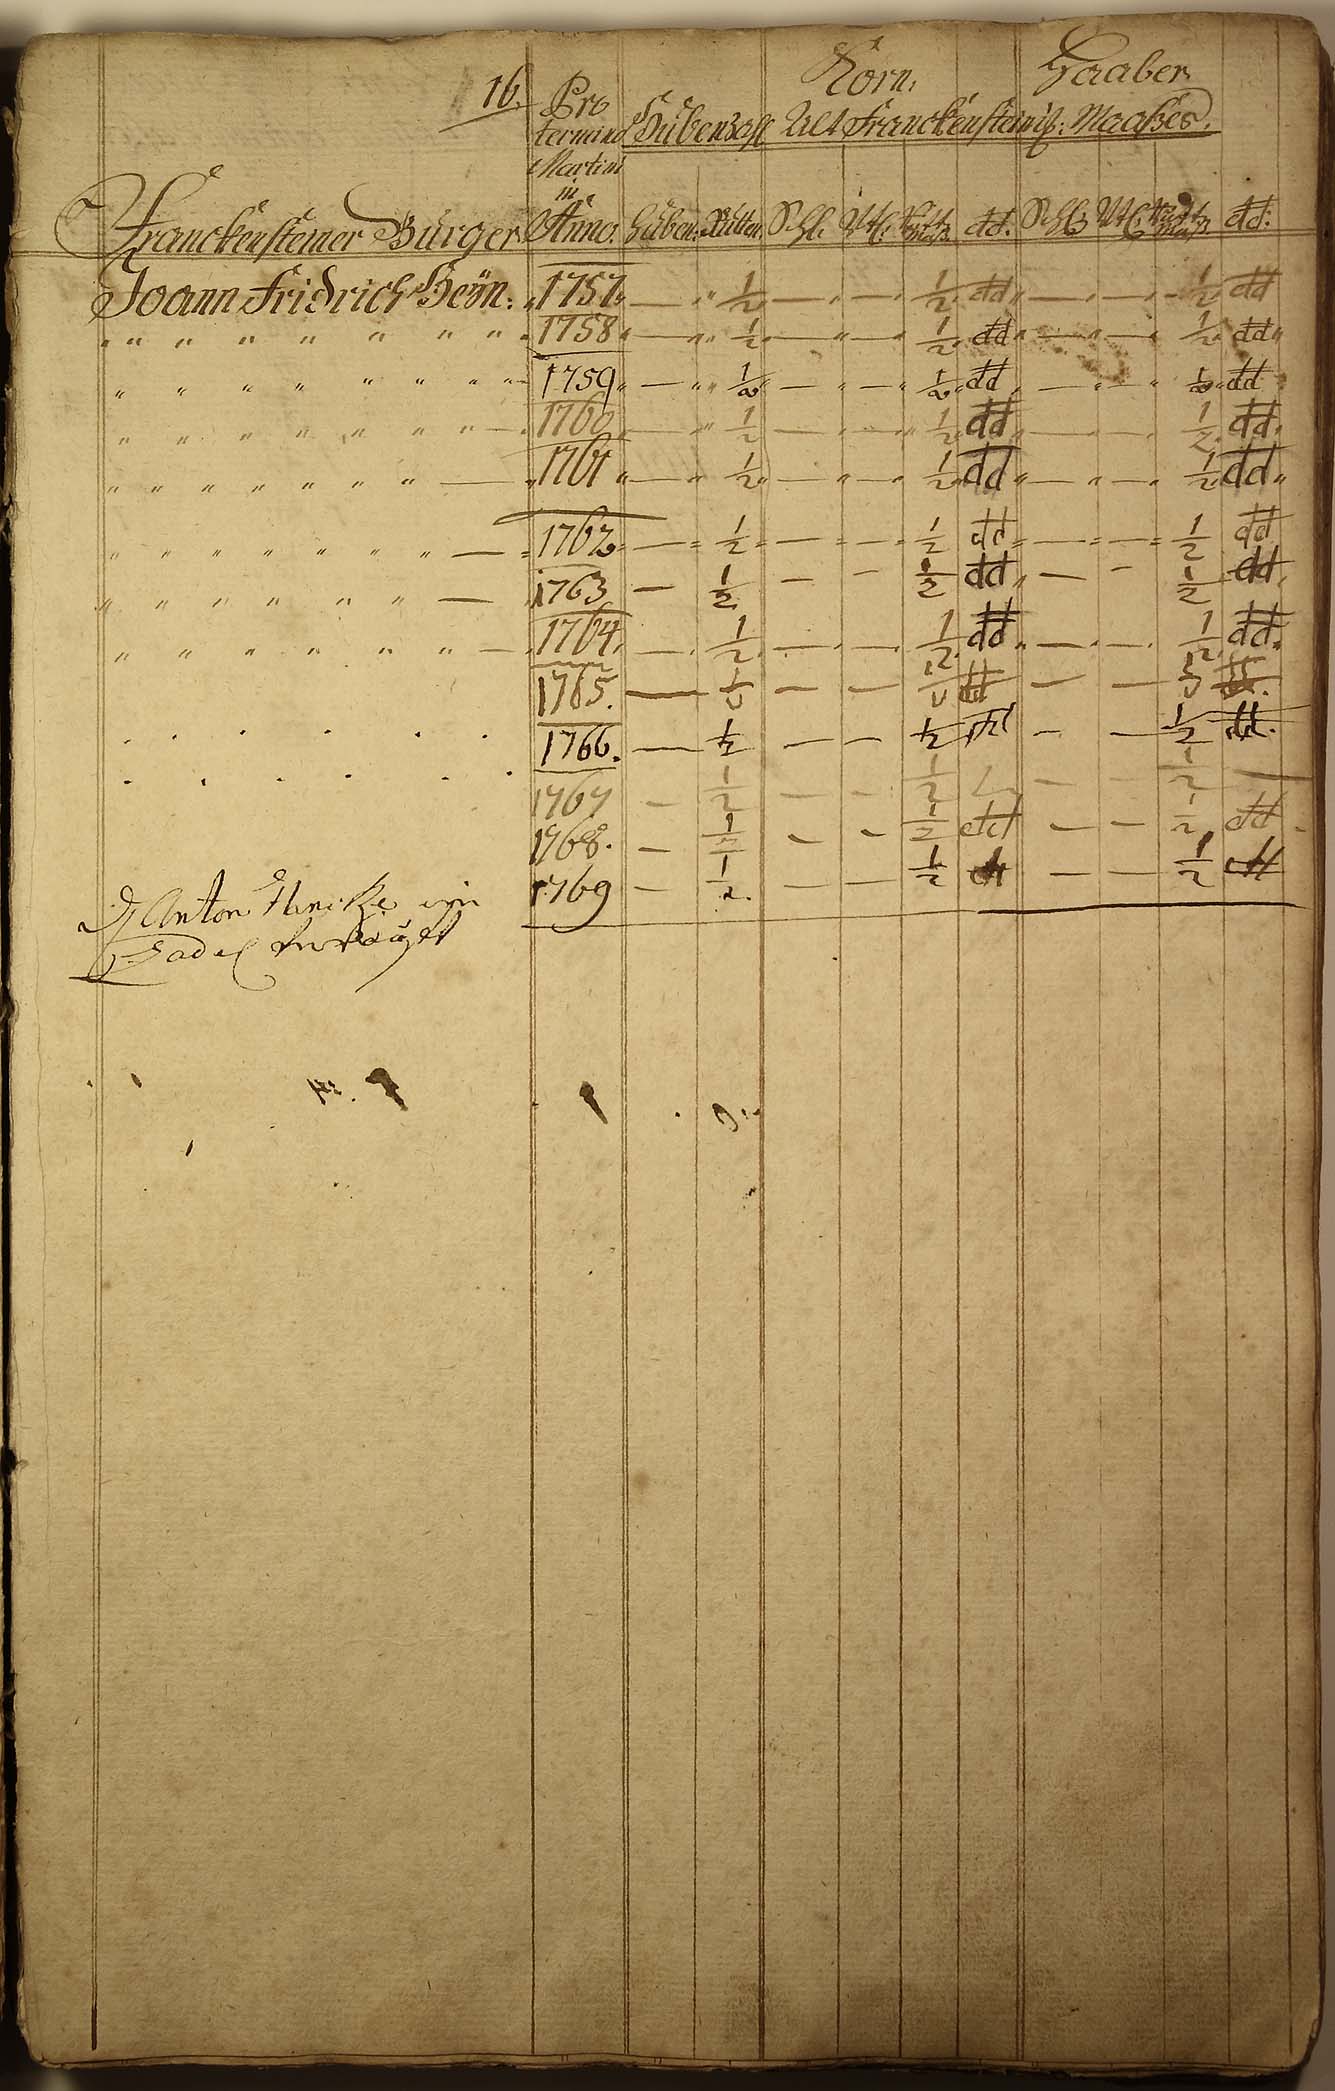 16.
Pro termino Martini in Anno.
Korn. Haaber.
Hubenzahl Alt Franckensteinisch: Maaßes.
Franckensteiner Bürger Huben. Rutten. Schl. Vtl. dd. Schl. Vtl. dd:
Joann Fridrich Beÿn: 1757 — " ½ — — ½ dd — — ½ dd
" " " " " " " 1758 — " ½ — " — ½ dd — " — ½ dd
" " " " " " " 1759 — " ½ — " — ½ dd — " — ½ dd
" " " " " " " — 1760 — " ½ — " — ½ dd — " — ½ dd
" " " " " " " — 1761 — " ½ — " — ½ dd — " — ½ dd
" " " " " " " — 1762 — ½ — — ½ dd — — ½ dd
" " " " " " — 1763 — ½ — — ½ dd — — ½ dd
" " " " " " " — 1764 — ½ — — ½ dd — — ½ dd
1765. — ½ — — ½ dd — — ½ dd.
1766. — ½ — — ½ dd — — ½ dd.
1767 — ½ — — ½ — — ½ —
1768. — ½ — — ½ dd — — ½ dd
1769 — ½ — — ½ dd — — ½ dd
Anton
Zadel